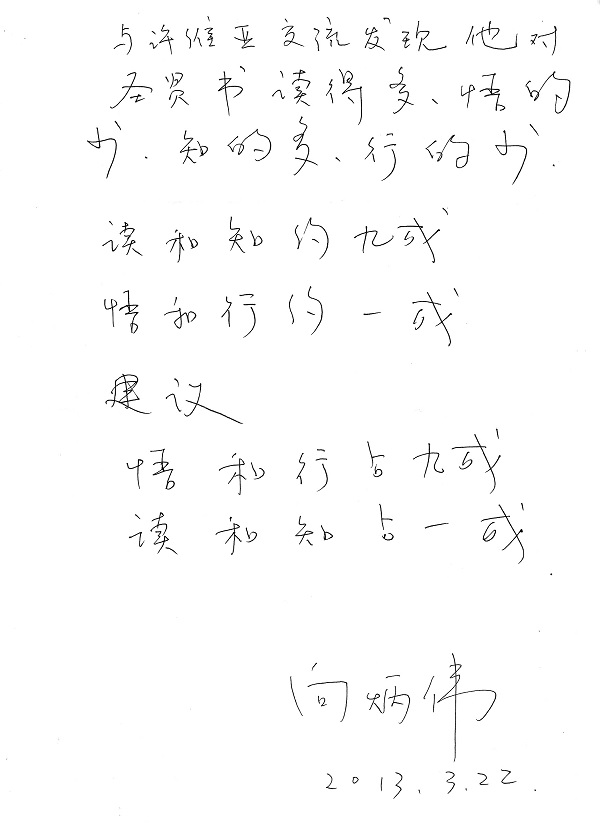 与许维亚交流发现他对
圣贤书读得多、悟的
少.知的多、行的少.
读和知约九成
悟和行约一成
建议
悟和行占九成
读和知占一成.
向炳伟
2013.3.22.